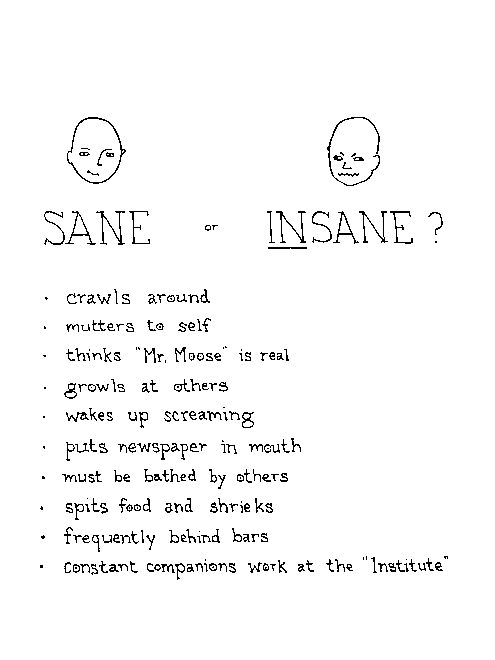 SANE or INSANE ?
· crawls around
· mutters to self
· thinks "Mr. Moose" is real
· growls at others
· wakes up screaming
· puts newspaper in mouth
· must be bathed by others
· spits food and shrieks
· frequently behind bars
· constant companions work at the "Institute"